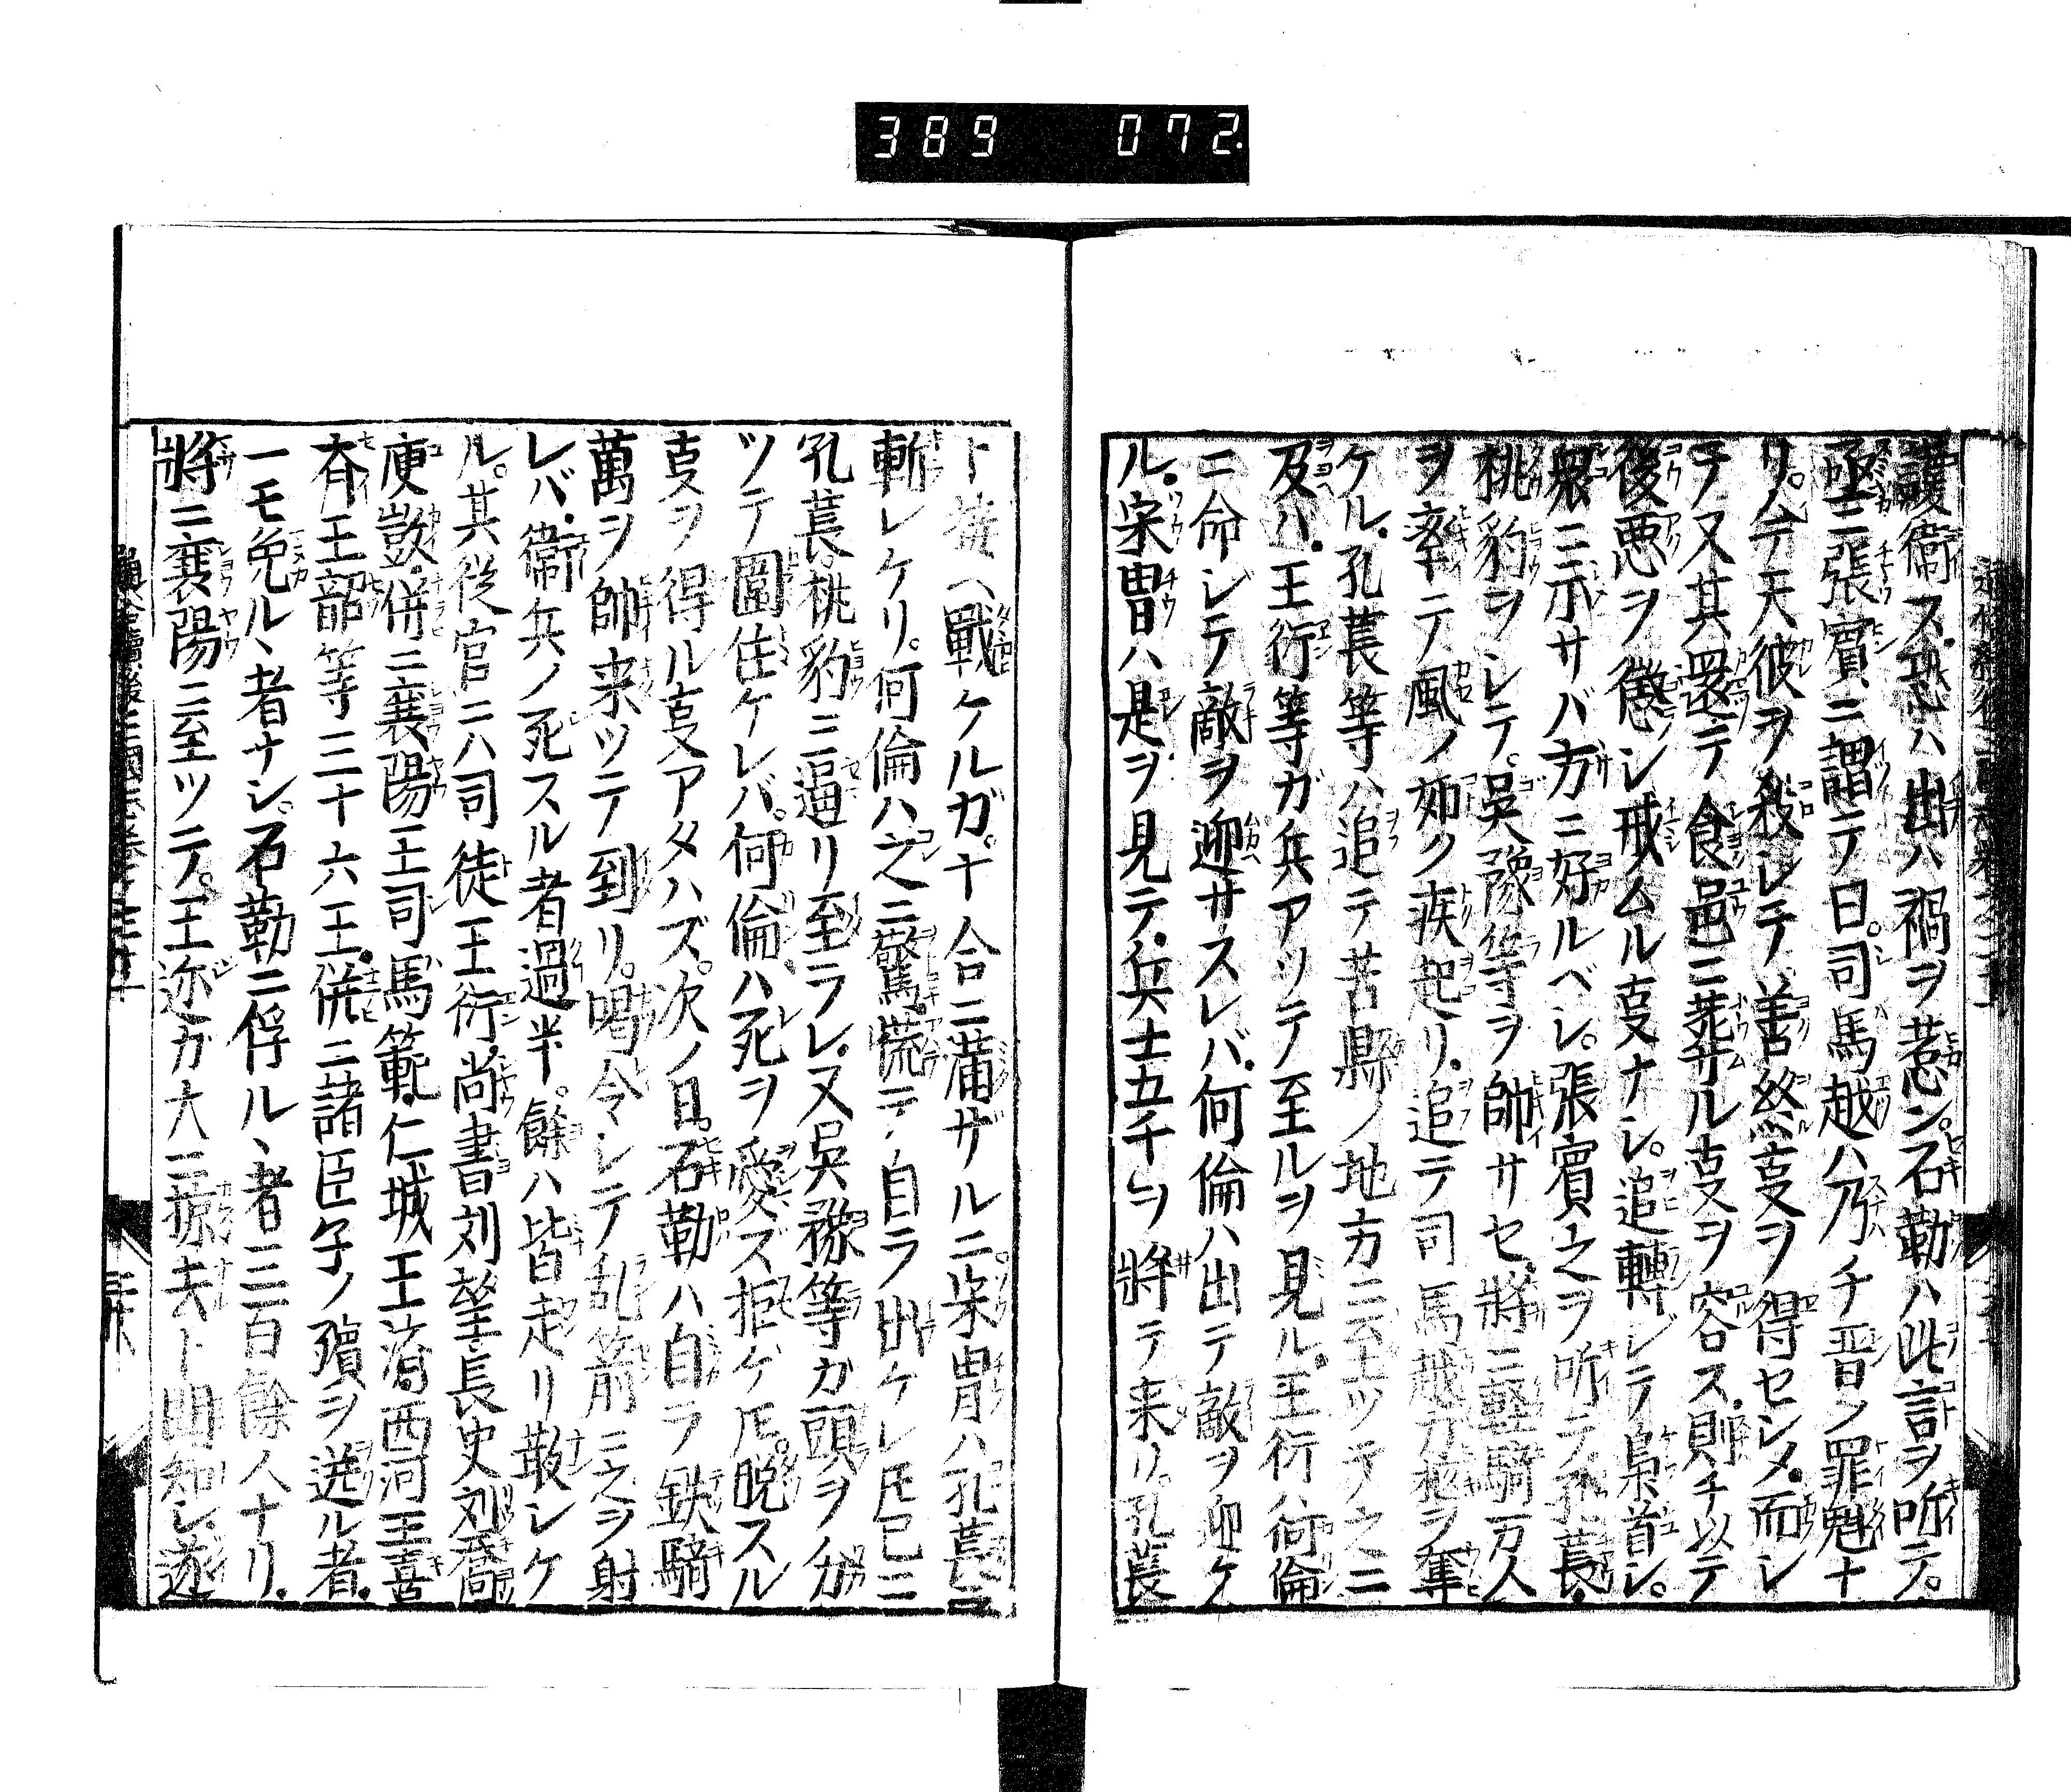 389 072
護衞ス。恐ハ出ハ禍ヲ惹ン。石勒ハ此言ヲ听テ。
亟ニ張賓ニ謂テ曰。司馬越ハ乃チ晋ノ罪魁ナ
リ。今テ天彼ヲ殺シテ善終叓ヲ得セシメ。而シ
テ又其還テ食邑ニ葬サル叓ヲ容ス。則チ以テ
後悪ヲ懲シ戒ムル叓ナシ。追轉シテ梟首シ。
衆ニ示サバ方ニ好ルベシ。張賓之ヲ听テ。孔萇。
桃豹ヲシテ。吳豫等ヲ帥サセ。將ニ軽騎一万人
ヲ率テ風ノ如ク疾起リ。追テ司馬越カ柩ヲ奪
ケル。孔萇等ハ追テ苦縣ノ地方ニ至ツテ之ニ
及ハ。王衍等ガ兵アツテ至ルヲ見ル。王衍ハ何倫
ニ命シテ敵ヲ迎サスレバ。何倫ハ出テ敵ヲ迎ケ
ル。宋冑ハ是ヲ見テ。兵士五千ヲ將テ来リ。孔萇
ト戦ケルガ。十合ニ滿ザルニ。宋冑ハ孔萇ニ
斬レケリ。何倫ハ之ニ驚慌テ。自ラ出ケレ𪜈已ニ
孔萇桃豹ニ逼リ至ラレ。又吳豫等ガ頭ヲ分
ツテ圍住ケレバ。何倫ハ死ヲ愛ズ拒ゲ𪜈。脱スル
叓ヲ得ル叓アタハズ。次ノ日。石勒ハ自ラ鉄騎
萬ヲ帥来ツテ到リ。喝令シテ乱箭ニ之ヲ射
レバ。衞兵ノ死スル者過半。餘ハ皆走リ散シケ
ル。其従官ニハ司徒王衍。尚書刘望。長史刘喬
庾敳。併ニ襄陽王司馬範。仁城王済。西河王喜
斉王韶等三十六王。併ニ諸臣午ノ殯ヲ送ル者。
一モ免ルヽ者ナシ。石勒ニ俘ルヽ者三百餘人ナリ。
將ニ襄陽ニ至ツテ。王弥カ大ニ掠去ト聞知シ。遂